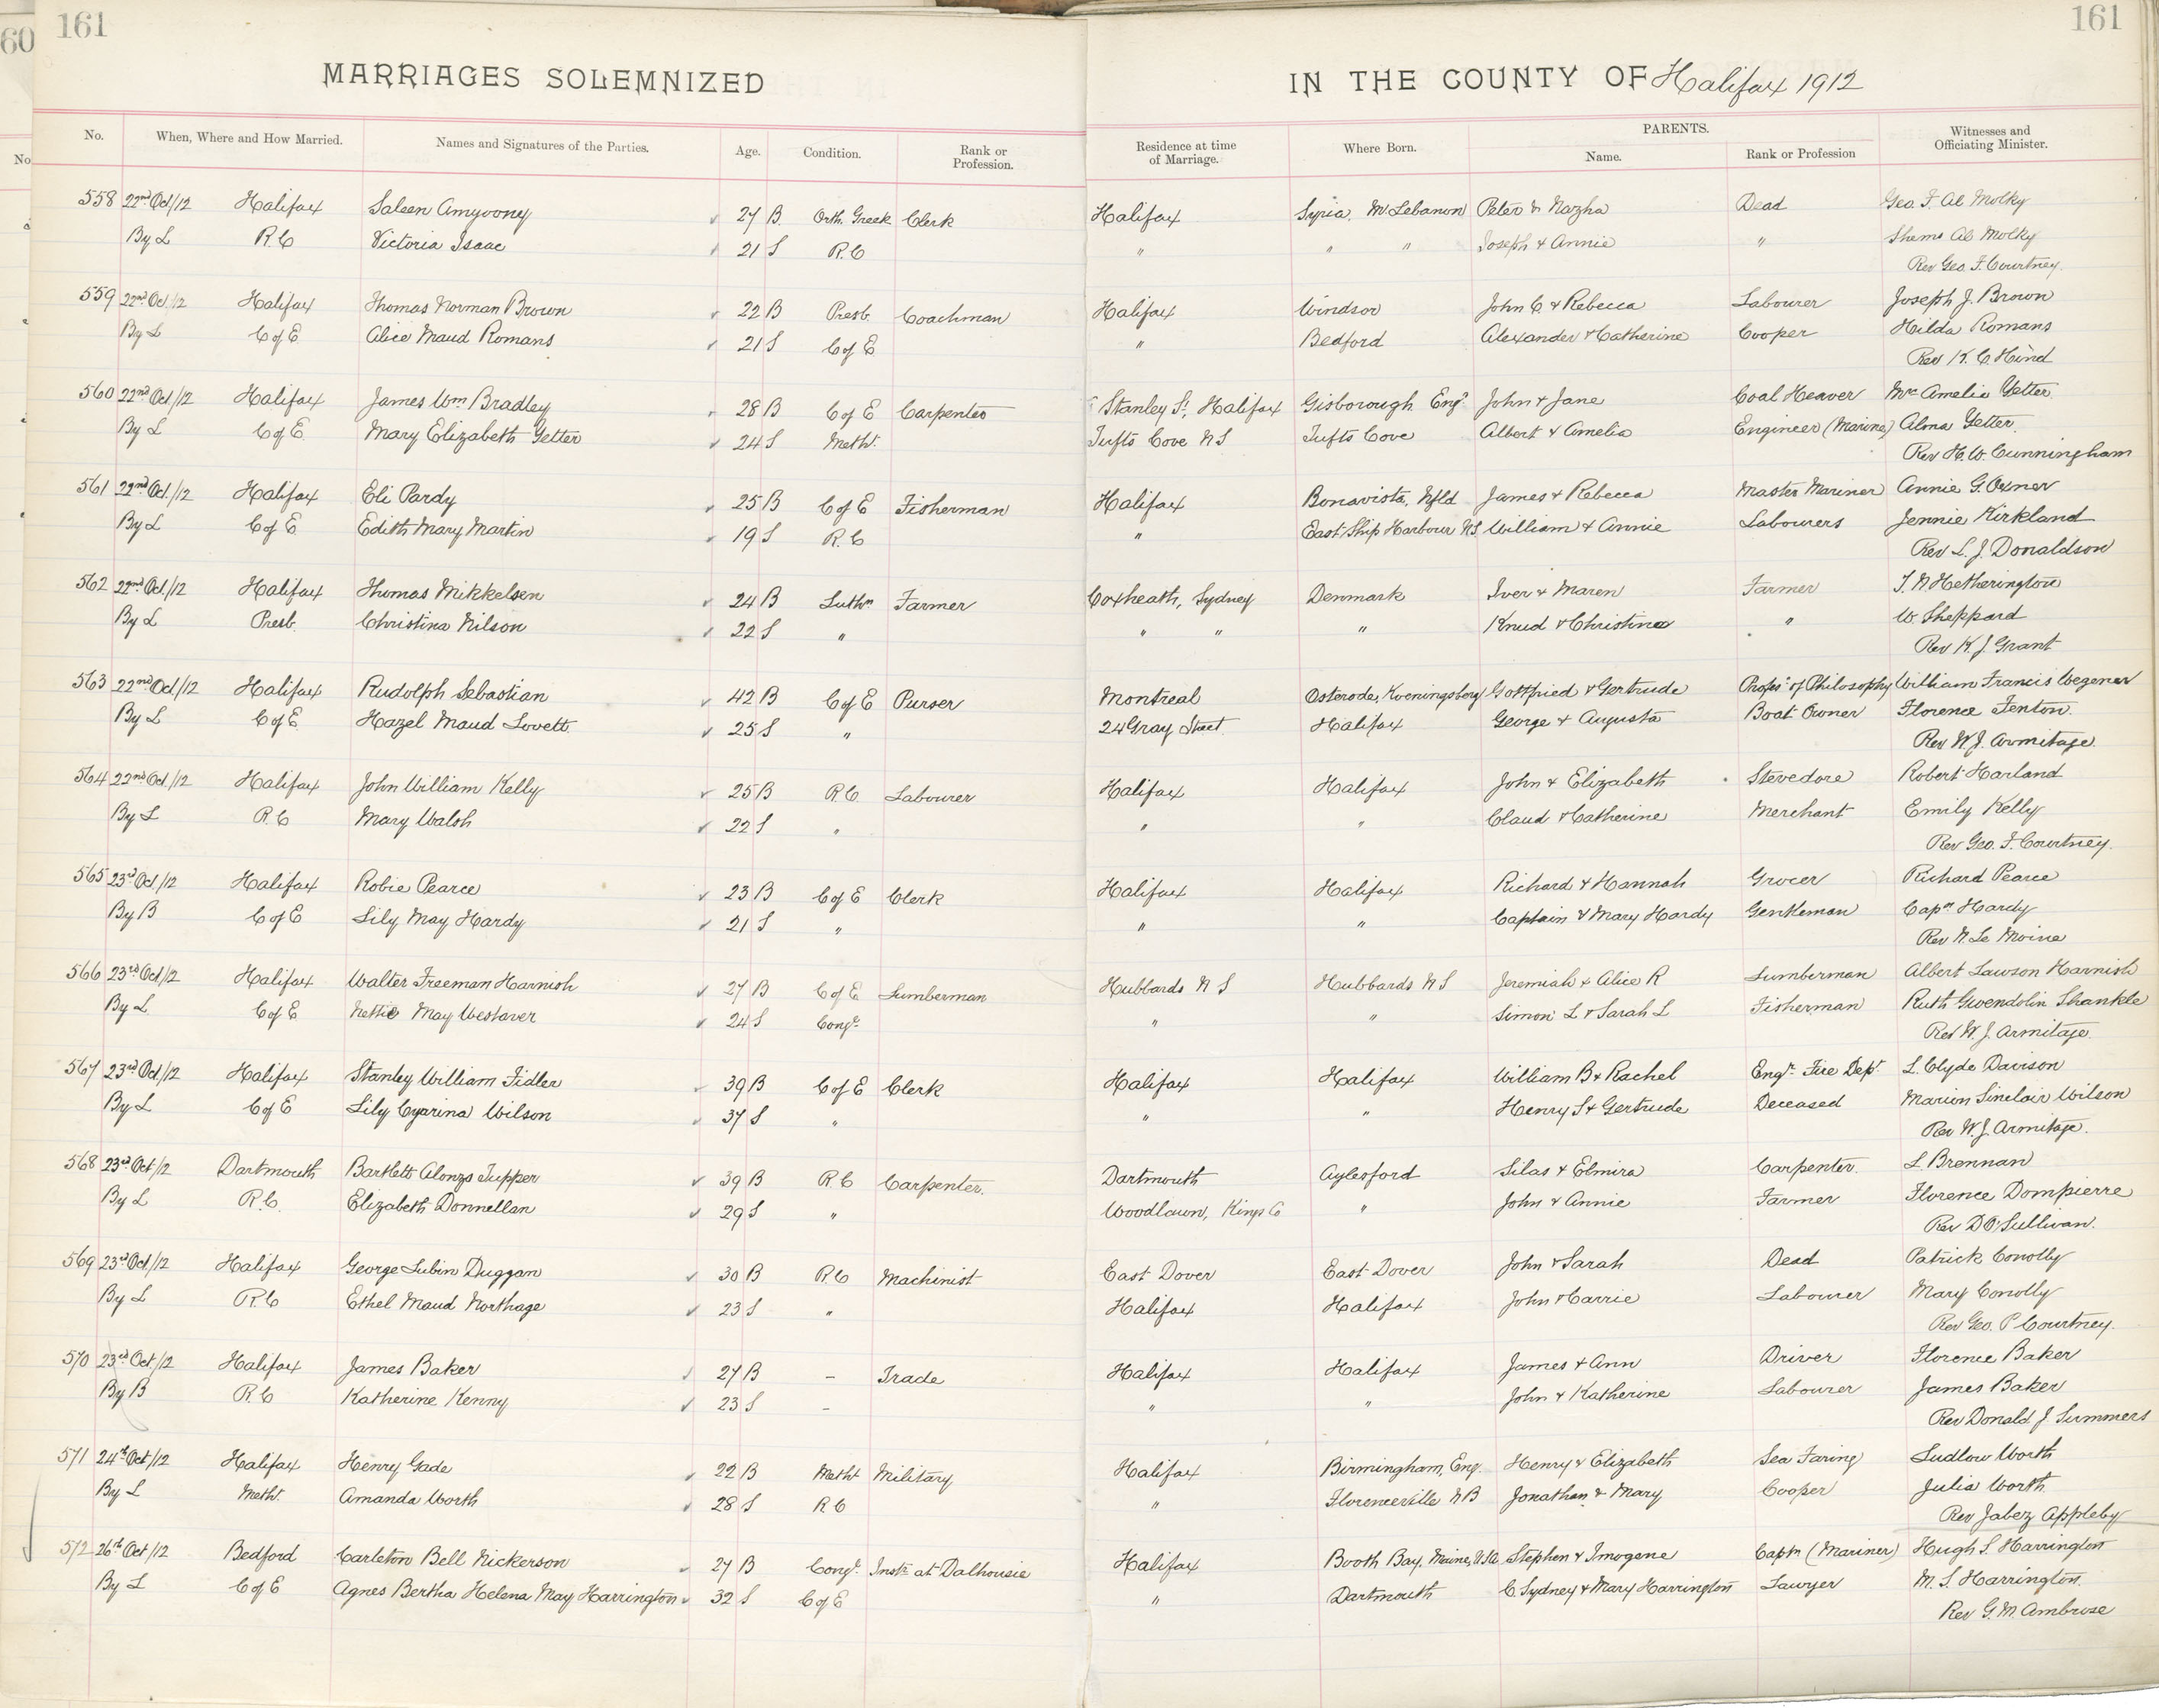 60 161 161
MARRIAGES SOLEMNIZED IN THE COUNTY OF Halifax 1912
No. When, Where and How Married. Names and Signatures of the Parties. Age. Condition. Rank or Profession. Residence at time of Marriage. Where Born. PARENTS. Name. Rank or Profession Witnesses and Officiating Minister.
558 22nd Oct/12 Halifax Saleen Amyoony 27 B Orth. Greek Clerk Halifax Syria, Mt Lebanon Peter & Nazha Dead Geo. F. Al Molky
By L R.C Victoria Isaac 21 S R.C " " " Joseph & Annie " Shems Al Molky
Rev Geo. F. Courtney
559 22nd Oct/12 Halifax Thomas Norman Brown 22 B Presb Coachman Halifax Windsor John C. & Rebecca Labourer Joseph J. Brown
By L C of E Alice Maud Romans 21 S C of E " Bedford Alexander & Catherine Cooper Hilda Romans
Rev K. C Hind
560 22nd Oct/12 Halifax James Wm Bradley 28 B C of E Carpenter Stanley St, Halifax Gisborough Engd John & Jane Coal Heaver Mrs Amelia Yetter
By L C of E Mary Elizabeth Yetter 24 S Meth. Tufts Cove N S Tufts Cove Albert & Amelia Engineer (Marine) Alma Yetter
Rev H. W. Cunningham
561 22nd Oct/12 Halifax Eli Pardy 25 B C of E Fisherman Halifax Bonavista, Nfld James & Rebecca Master Mariner Annie G. Oxner
By L C of E Edith Mary Martin 19 S R.C " East Ship Harbour N.S. William & Annie Labourers Jennie Kirkland
Rev L. J. Donaldson
562 22nd Oct/12 Halifax Thomas Mikkelsen 24 B Luthn Farmer Coxheath, Sydney Denmark Iver & Maren Farmer T. N Hetherington
By L Presb. Christina Nilson 22 S " " " " Knud & Christina " W. Sheppard
Rev K. J. Grant
563 22nd Oct/12 Halifax Rudolph Sebastian 42 B C of E Purser Montreal Osterode, Koeningsberg Gottfried & Gertrude Profesr of Philosophy William Francis Wegener
By L C of E Hazel Maud Lovett 25 S " 24 Gray Street Halifax George & Augusta Boat Owner Florence Fenton
Rev W. J. Armitage
564 22nd Oct/12 Halifax John William Kelly 25 B R.C. Labourer Halifax Halifax John & Elizabeth Stevedore Robert Harland
By L R.C Mary Walsh 22 S " " " Claud & Catherine Merchant Emily Kelly
Rev Geo. F. Courtney
565 23rd Oct/12 Halifax Robie Pearce 23 B C of E Clerk Halifax Halifax Richard & Hannah Grocer Richard Pearce
By B C of E Lily May Hardy 21 S " " " Captain & Mary Hardy Gentleman Capn Hardy
Rev N. Le Moine
566 23rd Oct/12 Halifax Walter Freeman Harnish 27 B C of E Lumberman Hubbards N S Hubbards N S Jeremiah & Alice R Lumberman Albert Lawson Harnish
By L C of E Nettie May Westaver 24 S Congl " " Simon L & Sarah L Fisherman Ruth Gwendolin Shankle
Rev W. J. Armitage
567 23rd Oct/12 Halifax Stanley William Fidler 39 B C of E Clerk Halifax Halifax William B & Rachel Engr. Fire Dept. L. Clyde Davison
By L C of E Lily Cyarina Wilson 37 S " " " Henry S & Gertrude Deceased Marion Sinclair Wilson
Rev W. J. Armitage
568 23rd Oct/12 Dartmouth Bartlett Alonzo Tupper 39 B R.C Carpenter. Dartmouth Aylesford Silas & Elmira Carpenter. L. Brennan
By L R.C. Elizabeth Donnellan 29 S " Woodlawn, Kings Co " John & Annie Farmer Florence Dompierre
Rev D O'Sullivan
569 23rd Oct/12 Halifax George Lubin Duggan 30 B R.C Machinist East Dover East Dover John & Sarah Dead Patrick Conolly
By L R.C Ethel Maud Northage 23 S " Halifax Halifax John & Carrie Labourer Mary Conolly
Rev Geo. P Courtney
570 23rd Oct/12 Halifax James Baker 27 B - Trade Halifax Halifax James & Ann Driver Florence Baker
By B R.C Katherine Kenny 23 S - " " John & Katherine Labourer James Baker
Rev Donald J Summers
571 24th Oct/12 Halifax Henry Gade 22 B Meth. Military Halifax Birmingham, Eng. Henry & Elizabeth Sea Faring Ludlow Worth
By L Meth. Amanda Worth 28 S R C " Florenceville N B Jonathan & Mary Cooper Julia Worth
Rev Jabez Appleby
572 26th Oct/12 Bedford Carleton Bell Nickerson 27 B Congl. Instr. at Dalhousie Halifax Booth Bay, Maine, U.S.A. Stephen & Imogene Captn (Mariner) Hugh S. Harrington
By L C of E Agnes Bertha Helena May Harrington 32 S C of E " Dartmouth C. Sydney & Mary Harrington Lawyer M. S. Harrington
Rev G. M. Ambrose